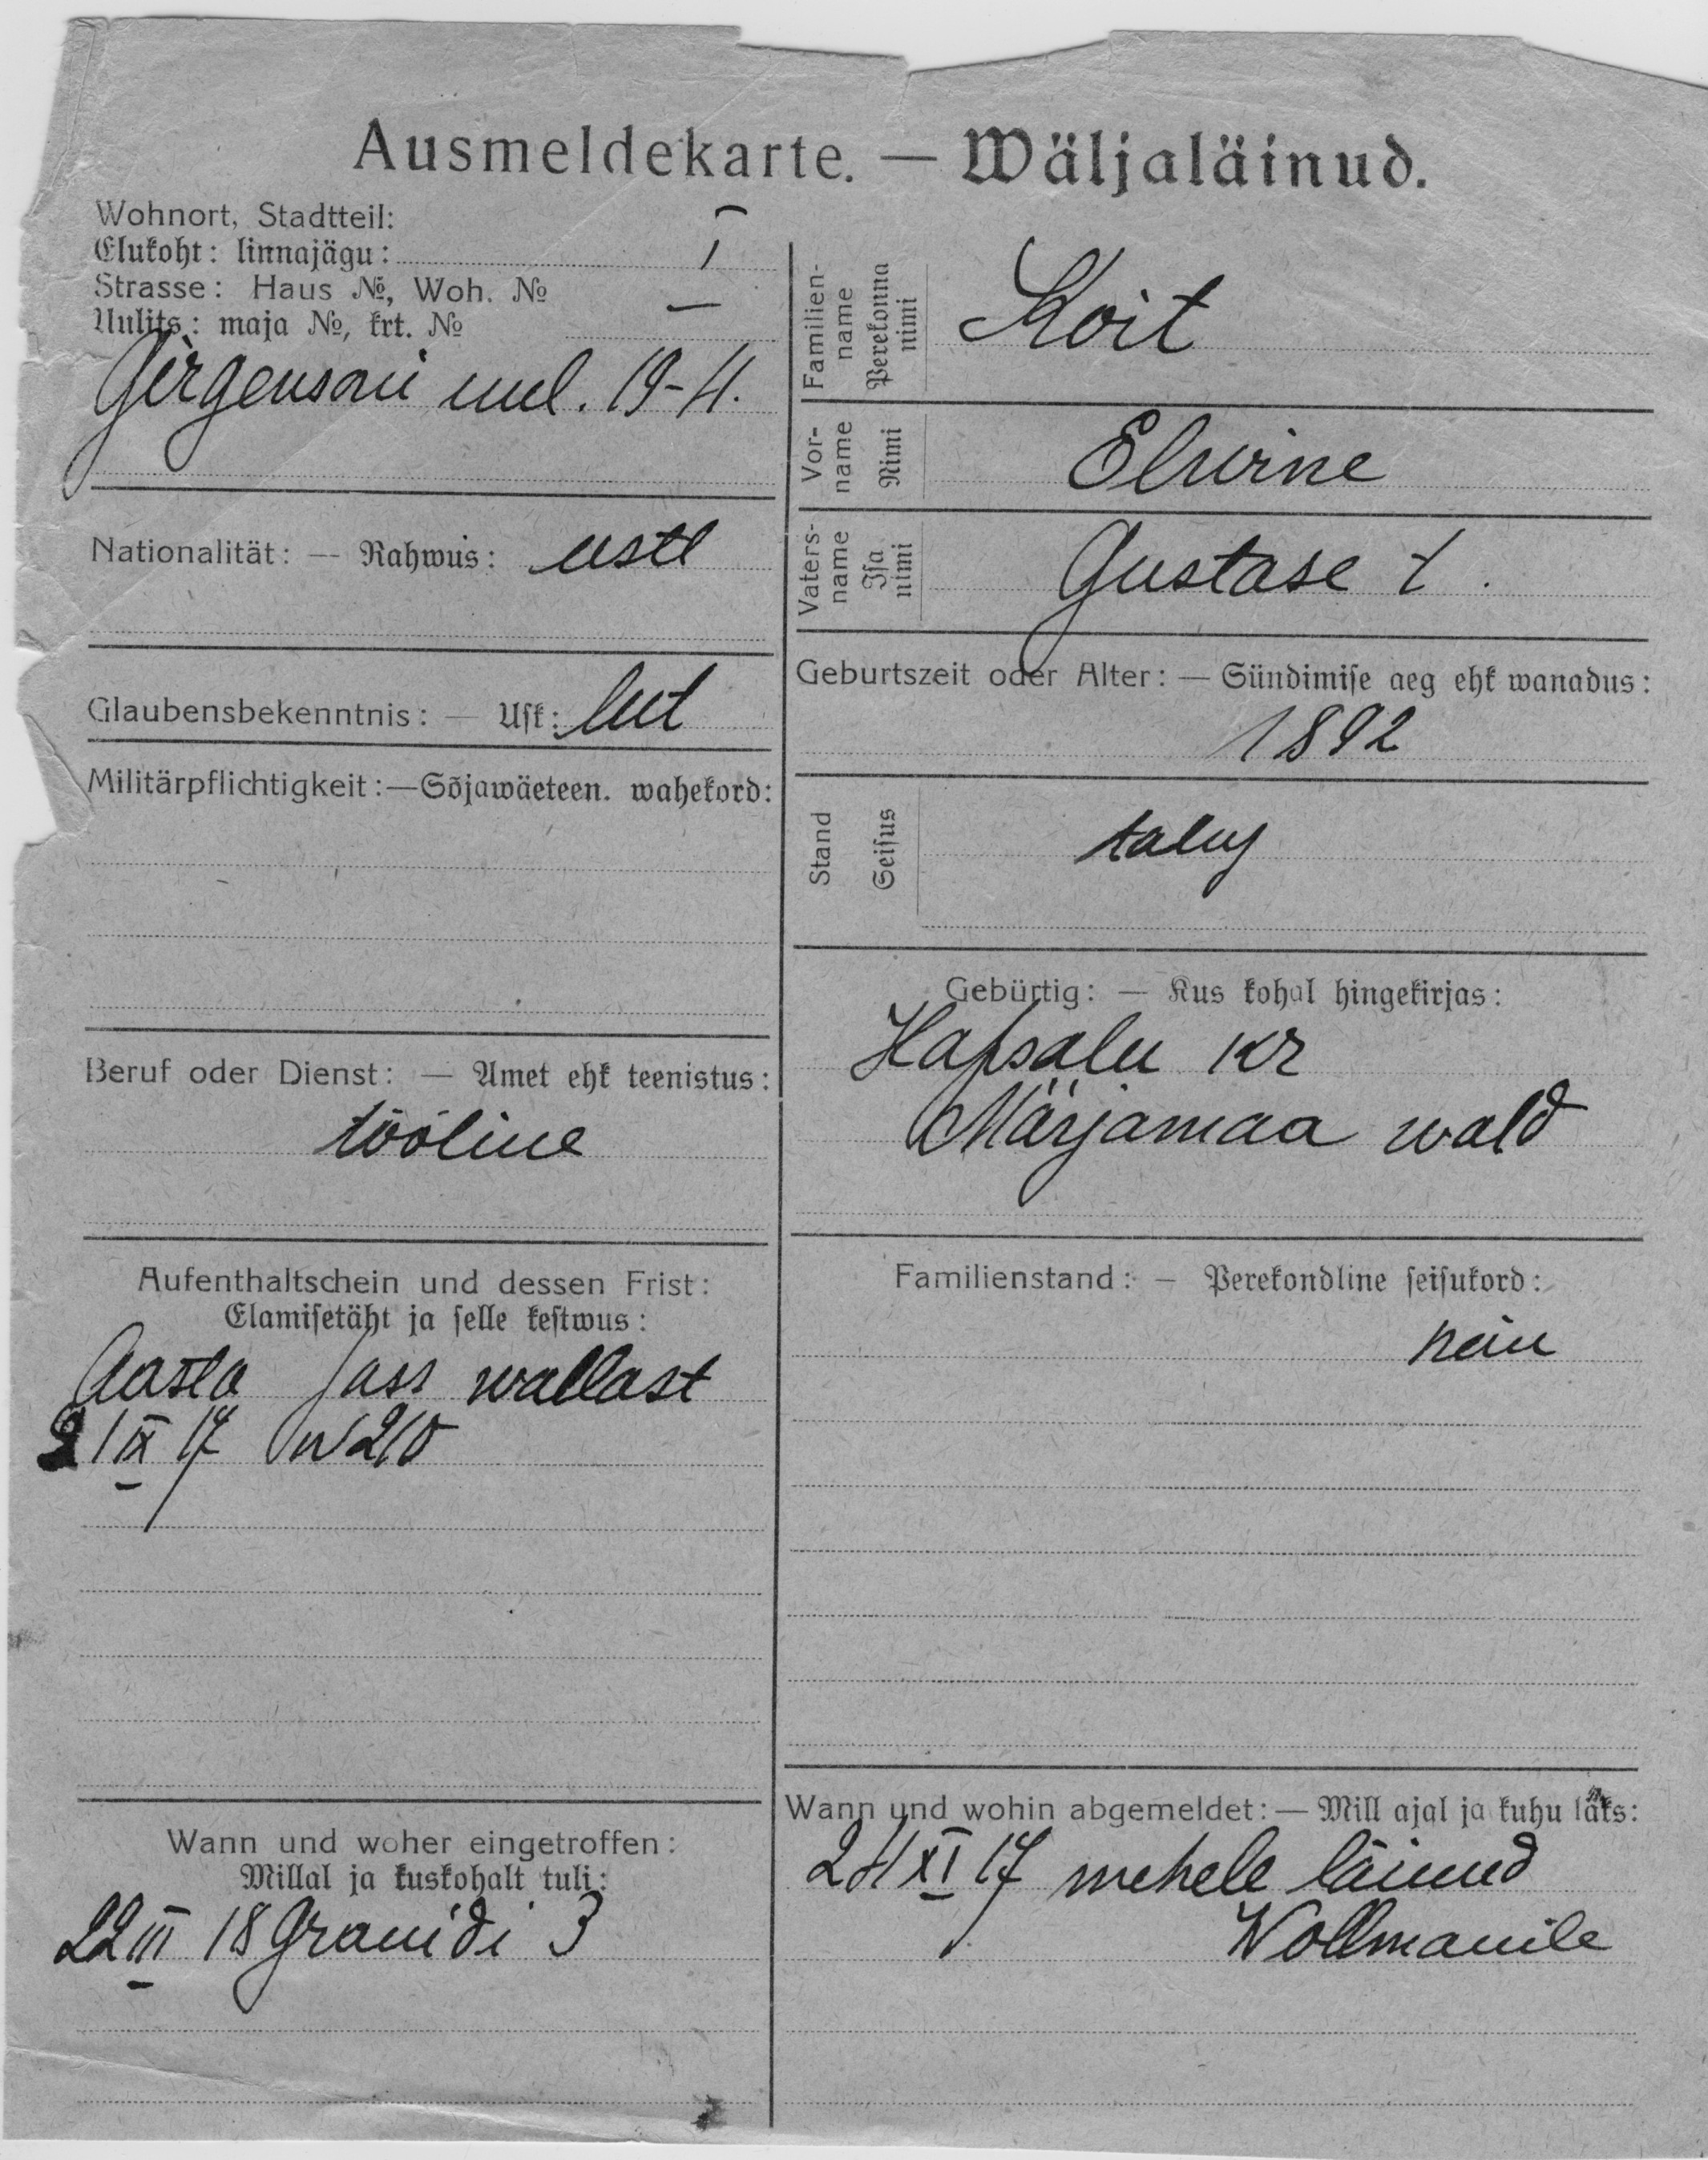 Ausmeldekarte. — Wäljaläinud.
Wohnort, Stadtteil:
Elukoht: linnajägu: I
Strasse: Haus №, Woh. №
Uulits: maja №, krt. №
Girgensoni uul. 19-4.
Nationalität: — Rahwus: eestl
Glaubensbekenntnis: — Usk: lut
Militärpflichtigkeit: — Sõjawäeteen. wahekord:
Beruf oder Dienst: — Amet ehk teenistus:
tööline
Aufenthaltschein und dessen Frist:
Elamisetäht ja selle kestwus:
Aasta pass wallast
21 IX 17 N 210
Wann und woher eingetroffen:
Millal ja kuskohalt tuli:
22 III 18 Granidi 3
Familien-name Perekonna nimi Koit
Vor-name Nimi Elwine
Vaters-name Isa nimi Gustase t.
Geburtszeit oder Alter: — Sündimise aeg ehk wanadus:
1892
Stand Seisus taluj
Gebürtig: — Kus kohal hingekirjas:
Hapsalu kr
Märjamaa wald
Familienstand: — Perekondline seisukord:
neiu
Wann und wohin abgemeldet: — Mill ajal ja kuhu läks:
24 XI 17 mehele läinud
Wollmanile